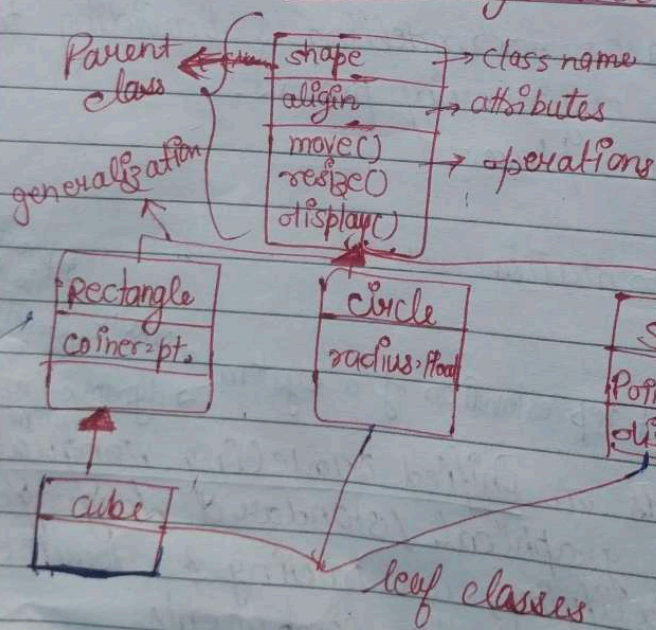 Parent
class
shape
class name
aligin
attributes
move()
resize()
display()
operations
generalization
Rectangle
corner:pt.
circle
radius:float
S
Poi
di
cube
leaf classes